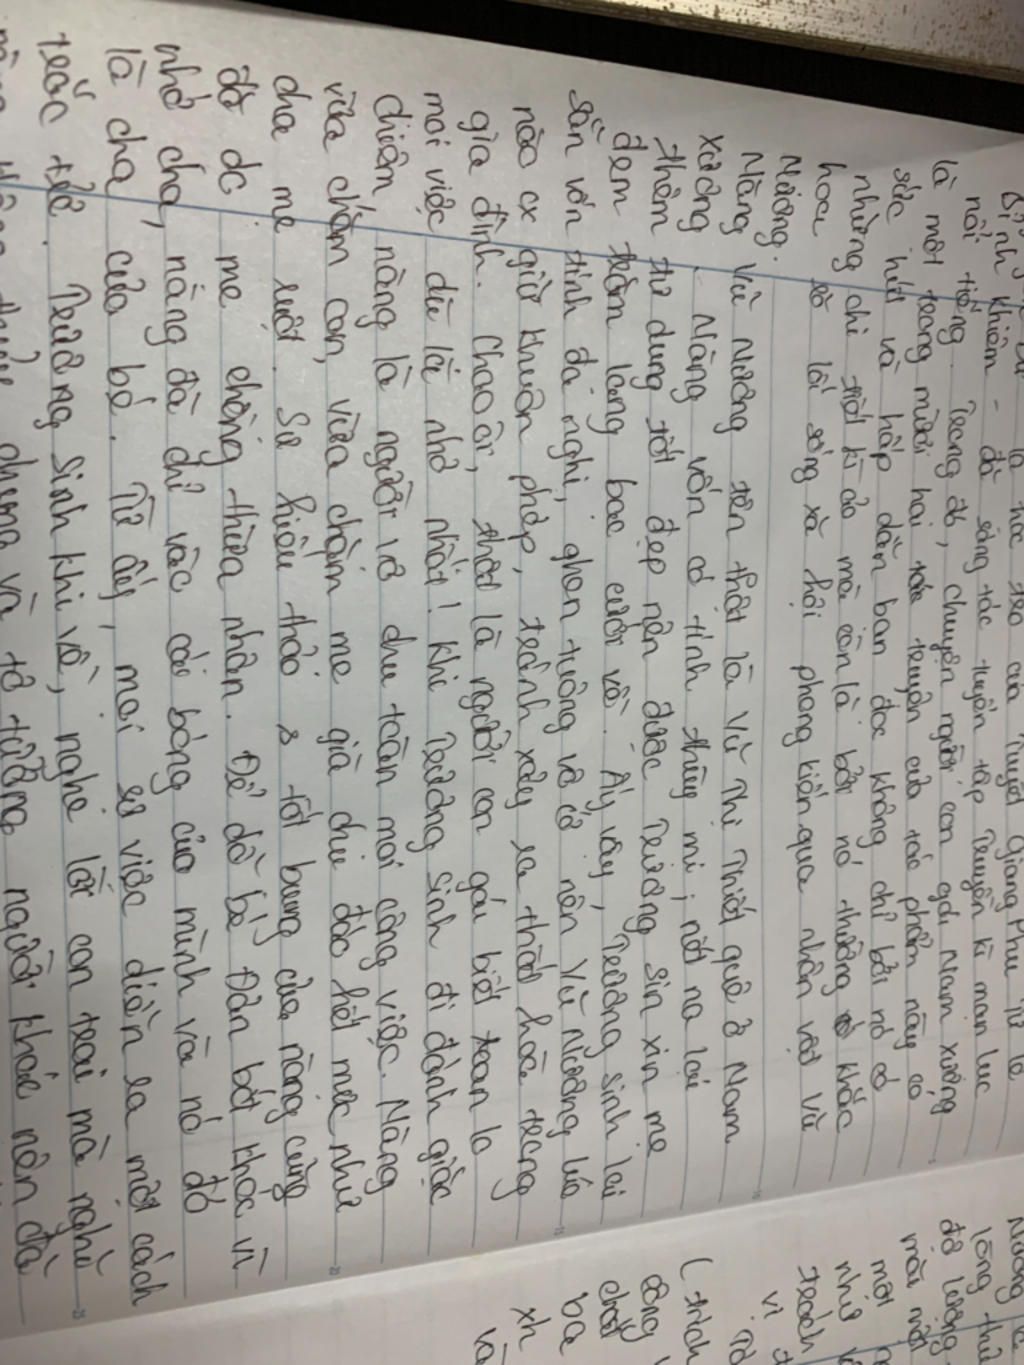 là học trò của Tuyết Giang Phu Tử là
Bỉnh Khiêm - đã sáng tác tuyển tập Truyền kì mạn lục
nổi tiếng. Trong đó, chuyện người con gái Nam xương
là một trong mười hai truyện của tác phẩm này có
sức hút và hấp dẫn bạn đọc không chỉ bởi nó có
những chi tiết kì ảo mà còn là bởi nó thường khắc
hoạ rõ lối sống xã hội phong kiến qua nhân vật Vũ
Nương.
Vũ Nương tên thật là Vũ Thị Thiết quê ở Nam
Xương. Nàng vốn có tính thùy mị, nết na lại
thêm tư dung tốt đẹp nên được Trương sin xin mẹ
đem trăm lạng bạc cưới về. Ấy vậy, Trương Sinh lại
sẵn vốn tính đa nghi, ghen tuông vô cớ nên Vũ Nương lúc
nào cx giữ khuôn phép, tránh xảy ra thất hòa trong
gia đình. Chao ôi, thật là người con gái biết toan lo
mọi việc dù là nhỏ nhất! Khi Trương Sinh đi đánh giặc
chiêm nàng là người vợ chu toàn mọi công việc. Nàng
vừa chăm con, vừa chăm mẹ già chu đáo hết mực như
cha mẹ ruột. Sự hiếu thảo & tốt bụng của nàng cũng
đã dc mẹ chồng thừa nhận. Để dỗ bé Đản bớt khóc vì
nhớ cha, nàng đã chỉ vào cái bóng của mình và nó đó
là cha của bé. Từ ấy, mọi sự việc diễn ra một cách
trắc trở. Trương Sinh khi về, nghe lời con trai mà nghĩ
chung và tơ tưởng người khác nên đã
Nương
lòng thủ
đờ lượng
mãi một
một
như
trách
vì
(trích
công
chất
ba
xh
và